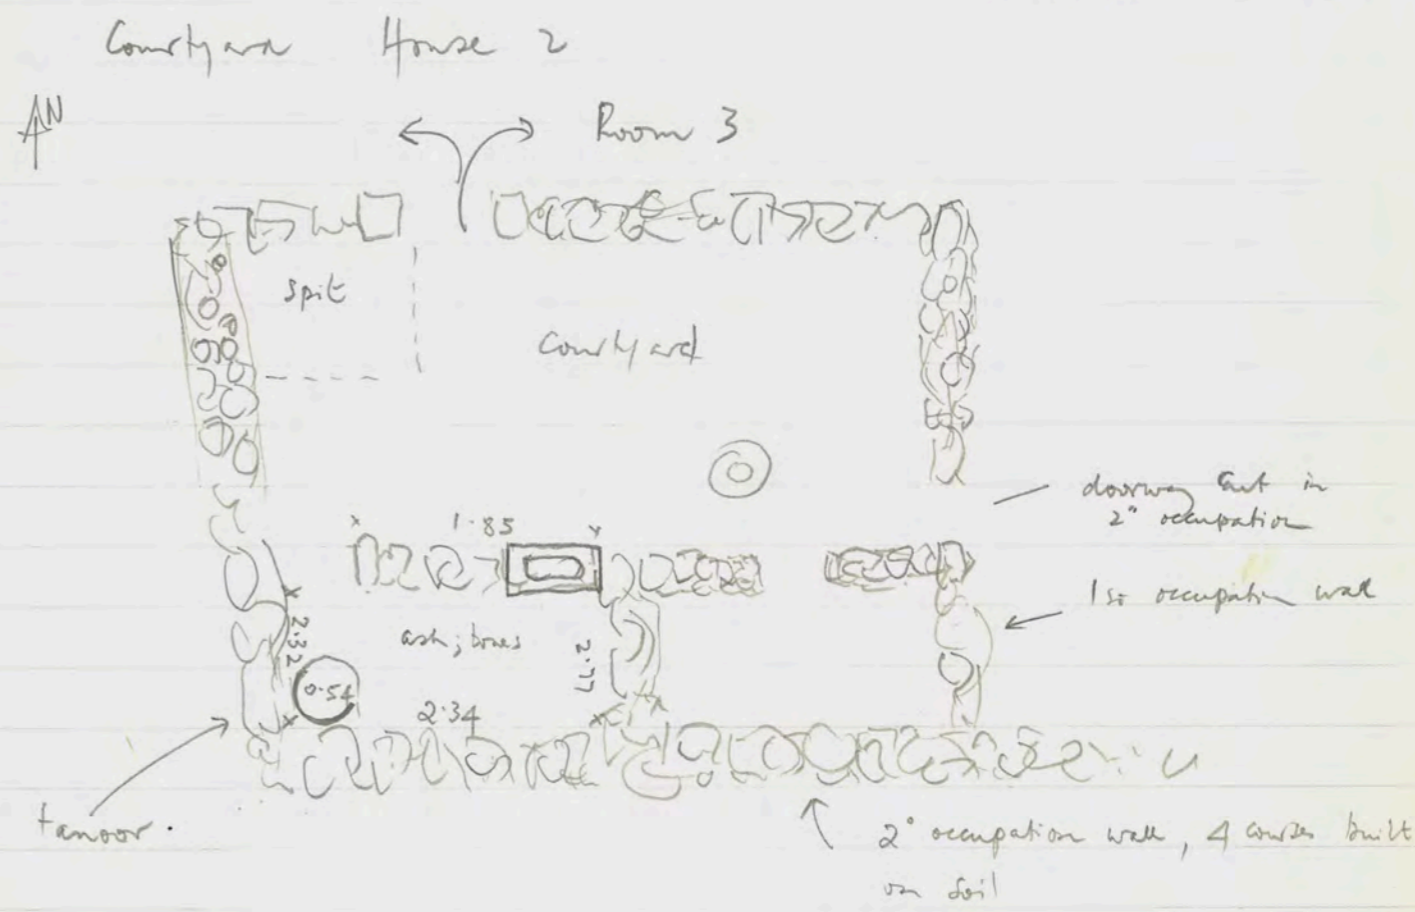 Courtyard House 2
N
Room 3
spit
courtyard
doorway cut in
2° occupation
1.85
1st occupation wall
ash; bones
2.32
2.77
0.54
2.34
tanoor.
2° occupation wall, 4 courses built
on soil